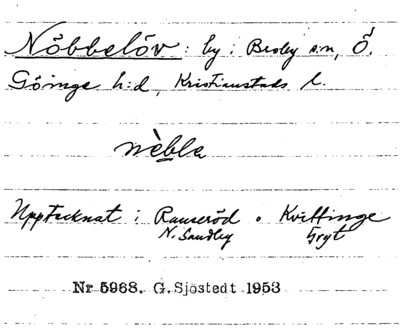 Nöbbelöv: by i Broby sn, Ö.
Göinge h:d, Kristianstads l.
nèbla
Upptecknat i Ranseröd o Kvittinge
N. Sandby Gryt
Nr 5968. G. Sjöstedt 1953